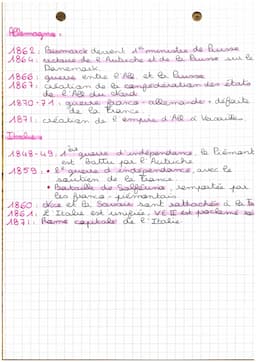 Allemagne :
1862 : Bismarck devient 1er ministre de Prusse
1864 : victoire de l'Autriche et de la Prusse sur le
Danemark.
1866 : guerre entre l'All et la Prusse
1867 : création de la confédération des états
de l'All du Nord
1870-71 : guerre franco-allemande : défaite
de la France.
1871 : création de l'empire d'All à Versailles
Italie :
1848-49 : 1ère guerre d'indépendance, le Piémont
est battu par l'Autriche
1859 : • 2e guerre d'indépendance, avec le
soutien de la France
• Bataille de Solférino, remportée par
les franco-piémontais
1860 : Nice et la Savoie sont rattachés à la
1861 : L'Italie est unifiée, VE II est proclamé
1871 : Rome capitale de l'Italie